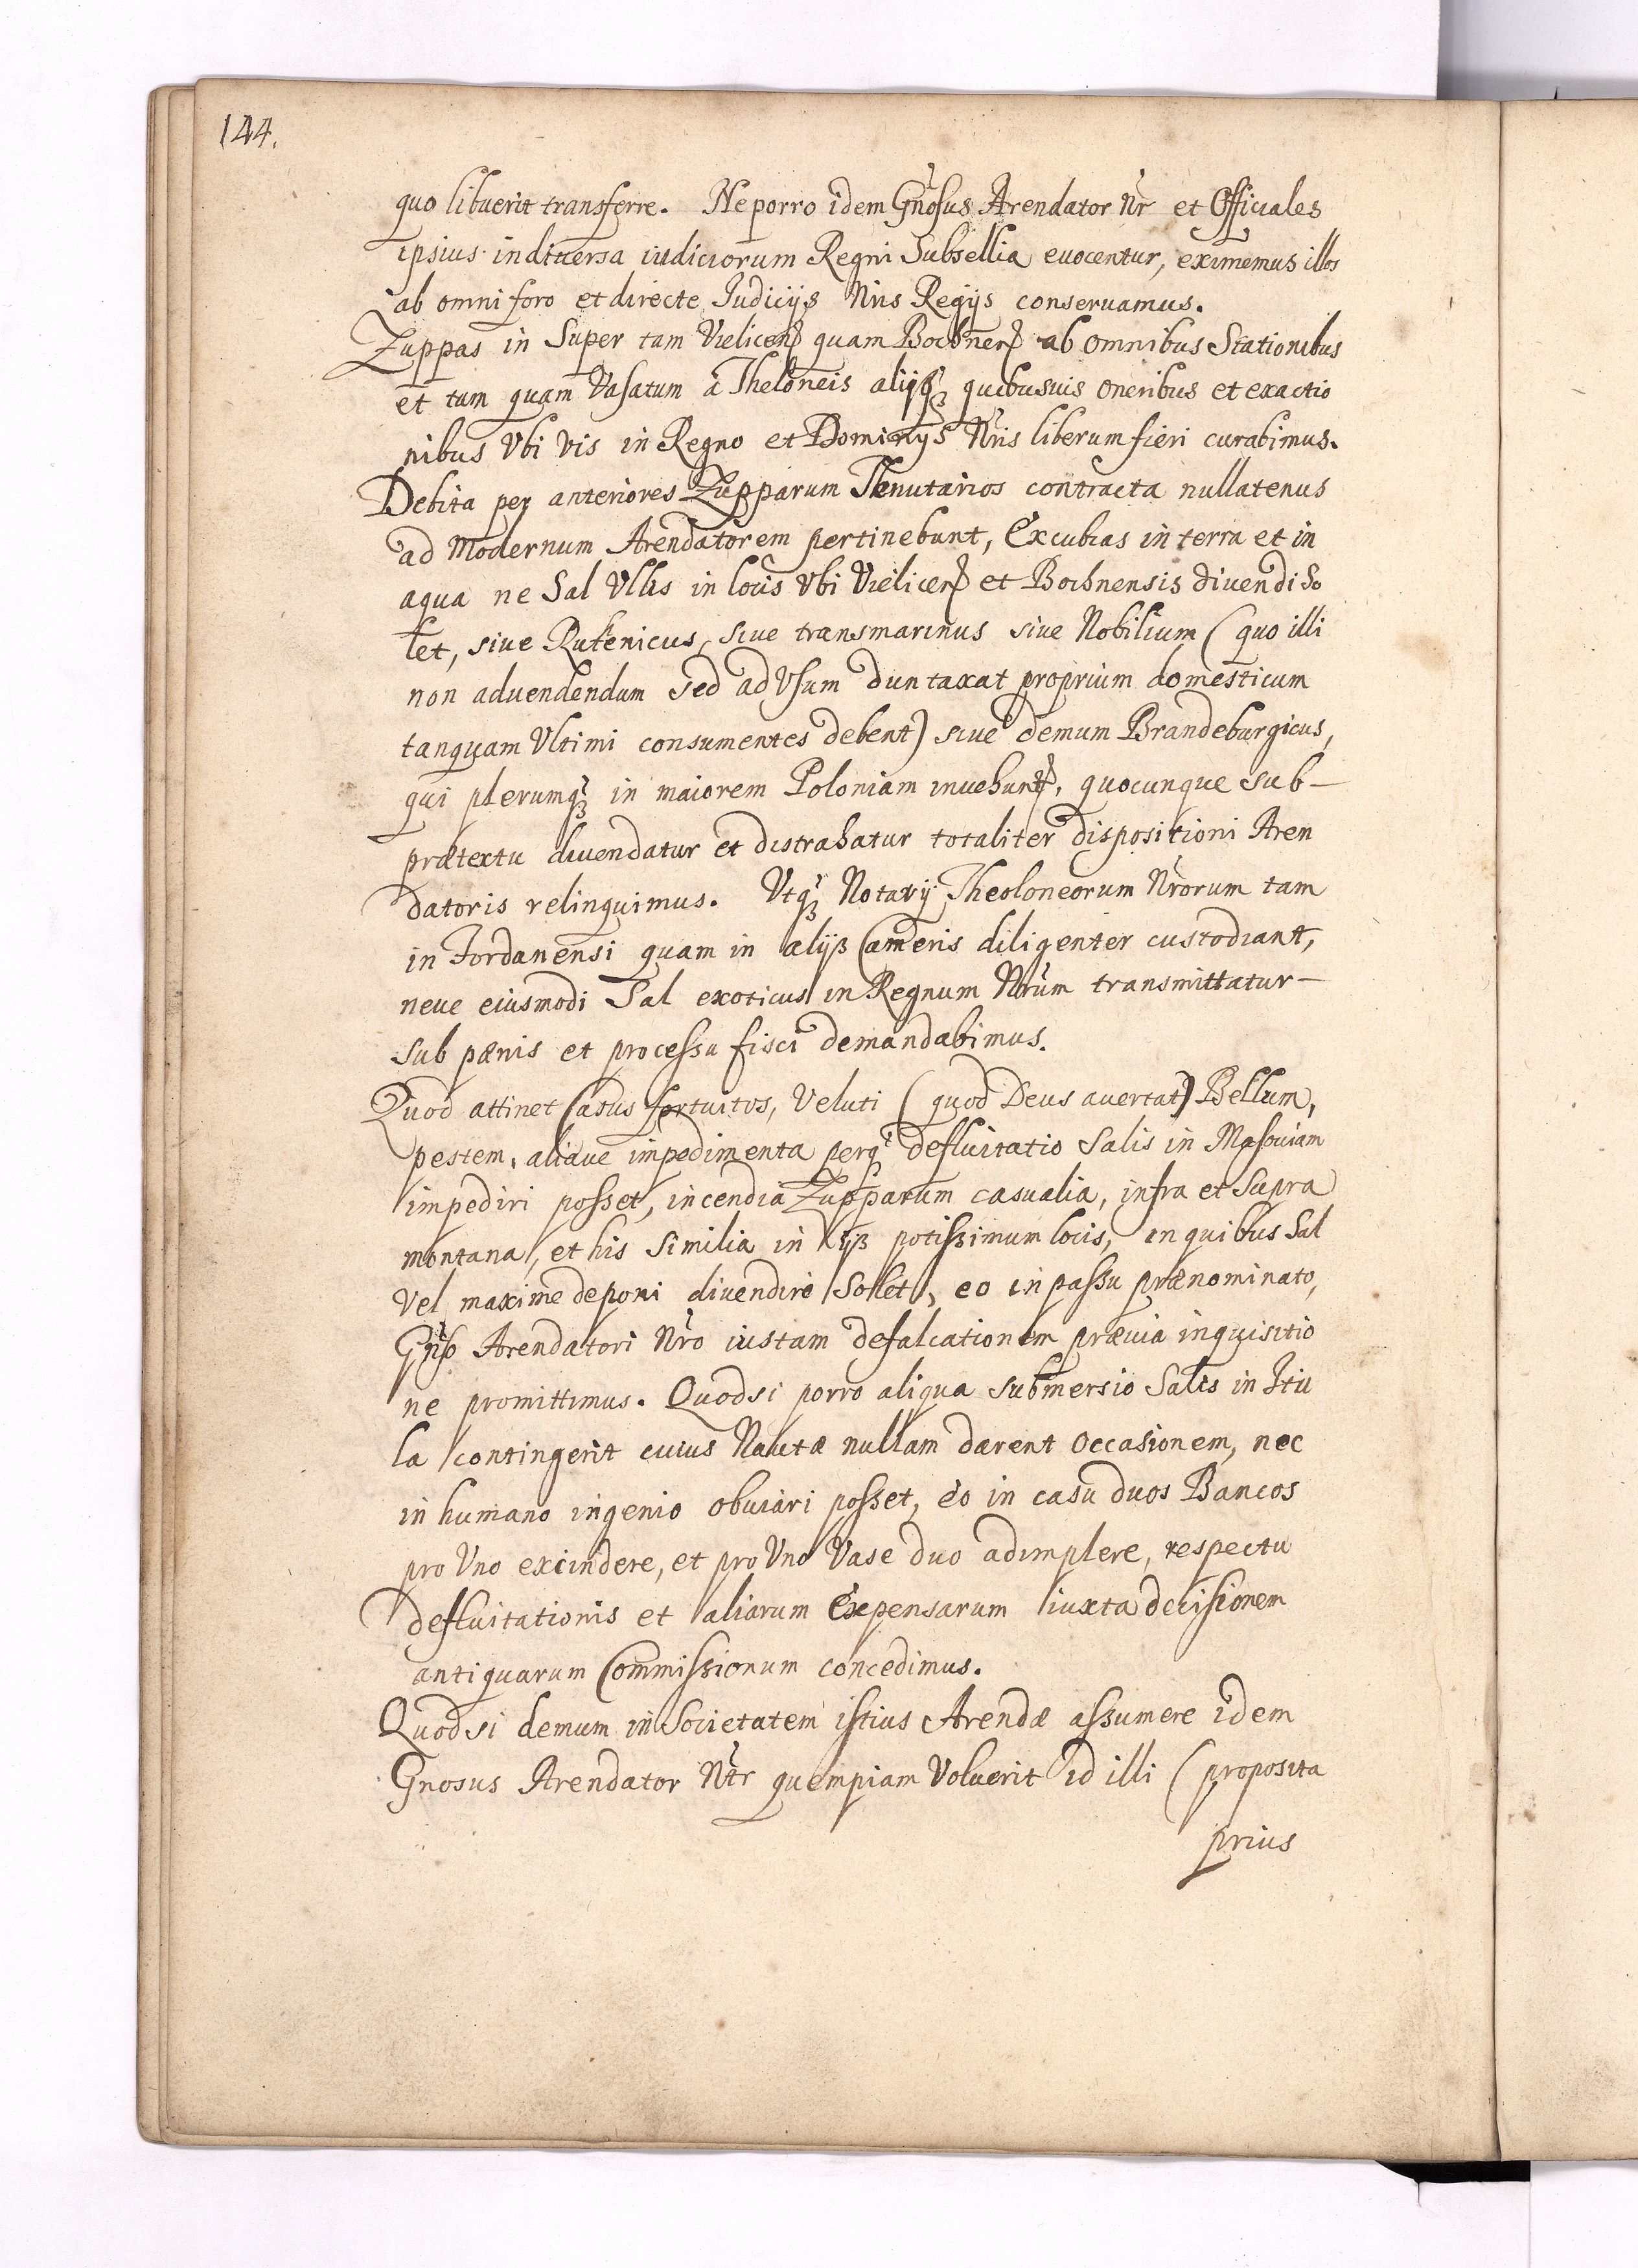 144.
quo libuerit transferre. Ne porro idem Gnosus Arendator Nr et Officiales
ipsius in diuersa iudiciorum Regni Subsellia euocentur, eximemus illos
ab omni foro et directe Iudicijs Nris Regijs conseruamus.
Zuppas in Super tam Vielicen quam Bochnen ab omnibus Stationibus
et tum quam Vasatum à Theloneis alijsq quibusuis oneribus et exactio
nibus Vbi vis in Regno et Dominijs Nris liberum fieri curabimus.
Debita per anteriores Zupparum Tenutarios contracta nullatenus
ad Modernum Arendatorem pertinebunt, Excubias in terra et in
aqua ne Sal Vllus in locis Vbi Vielicen et Bochnensis divendi So
let, siue Rutenicus, siue transmarinus siue Nobilium ( quo illi
non aduendendum sed ad Vsum duntaxat proprium domesticum
tanquam Vltimi consumentes debent) siue demum Brandeburgicus,
qui plerumq in maiorem Poloniam inuehunt, quocunque sub-
prætextu diuendatur et distrahatur totaliter dispositioni Aren
datoris relinquimus. Vtq Notarij Theoloneorum Nrorum tam
in Fordanensi quam in alijs Cameris diligenter custodiant,
neue eiusmodi Sal exoticus in Regnum Nrum transmittatur-
sub pænis et processu fisci demandabimus.
Quod attinet Casus fortuitos, Veluti ( quod Deus auertat) Bellum,
pestem, aliaue impedimenta perq defluitatio Salis in Masouiam
impediri posset, incendia Zupparum casualia, infra et supra
montana, et his Similia in ijs potissimum locis, in quibus Sal
Vel maxime deponi divendiré Solet, eo in passu prænominato,
Gnso Arendatori Nro iustam defalcationem præuia inquisitio
ne promittimus. Quodsi porro aliqua submersio Salis in Itu
la contingerit cuius Nautæ nullam darent occasionem, nec
in humano ingenio obuiari posset, eo in casu duos Bancos
pro Vno excindere, et pro Vno Vase duo adimplere, respectu
defluitationis et aliarum Expensarum iuxta decisionem
antiquarum Commissionum concedimus.
Quodsi demum in Societatem istius Arendæ assumere idem
Gnosus Arendator Ntr quempiam Voluerit id illi ( proposita
prius